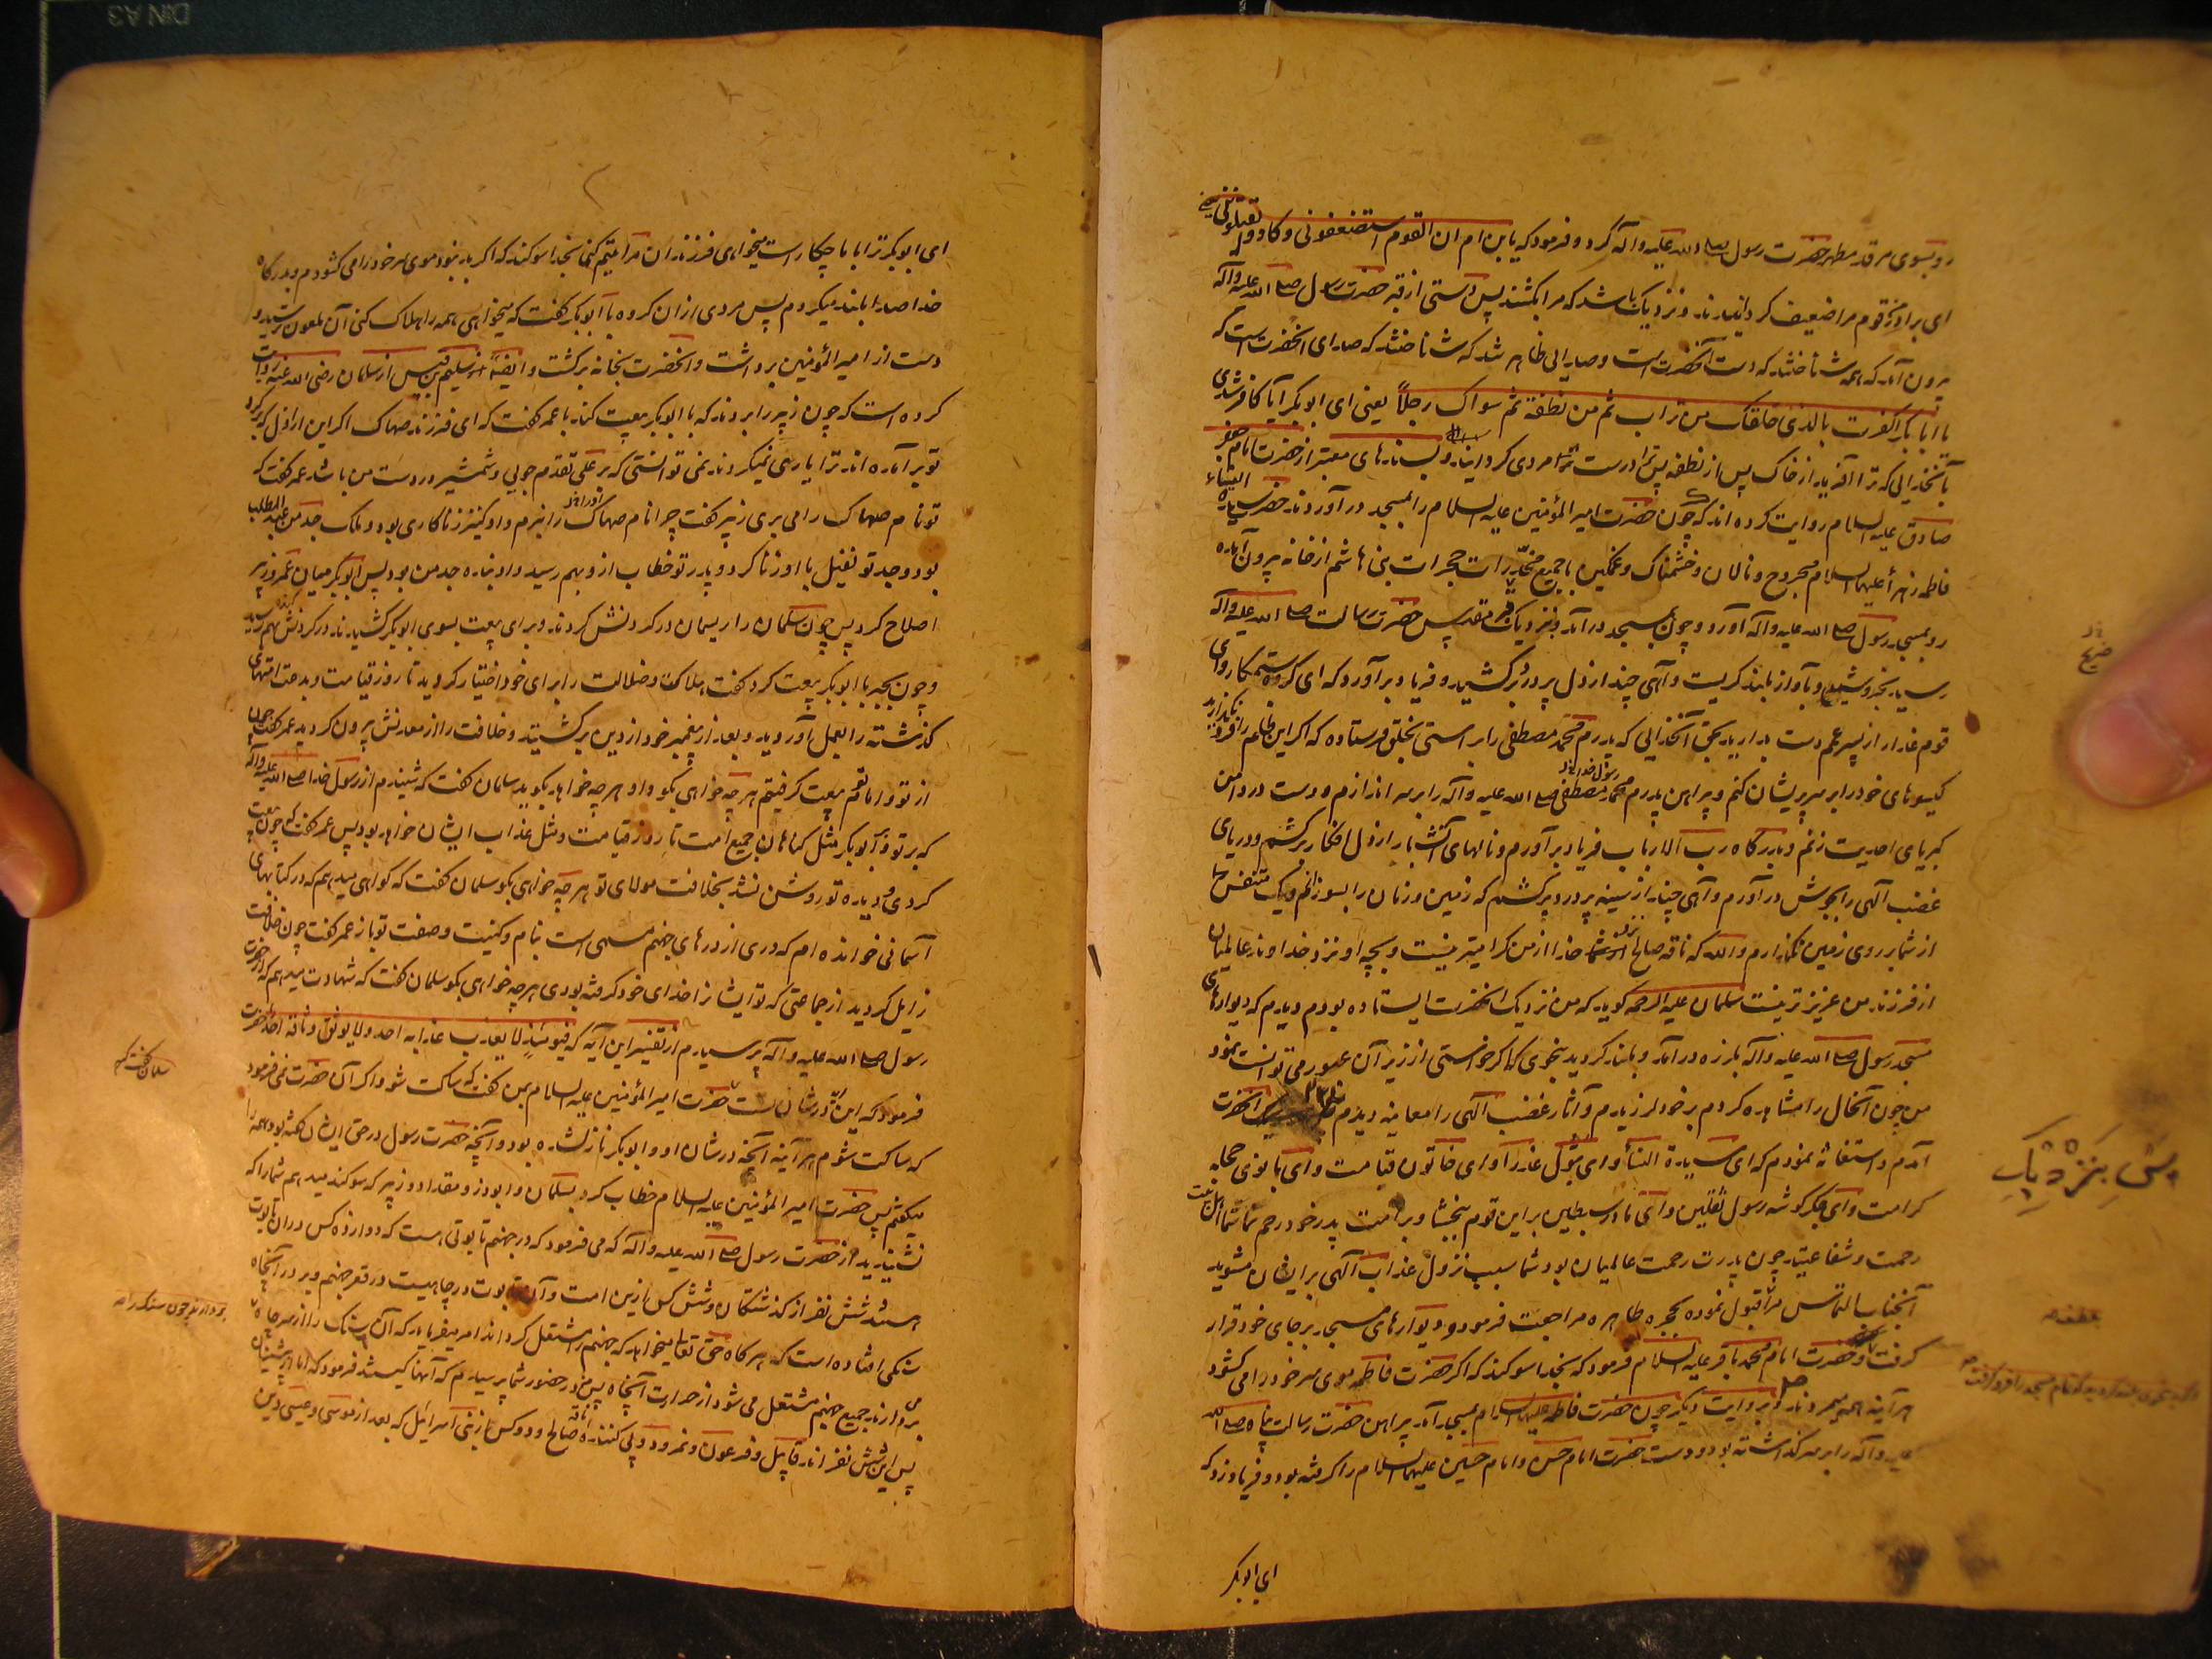 رو بسوی مرقد مطهر حضرت رسول صلی الله علیه و آله کرد و فرمود که یا بن ام ان القوم استضعفونی و کادوا یقتلوننی یعنی
ای برادر من قوم مرا ضعیف گردانیدند و نزدیک شد که مرا بکشند پس دستی از قبر حضرت رسول صلی الله علیه و آله
بیرون آمد که همه شناختند که دست آنحضرت است و صدایی ظاهر شد که شناختند که صدای آنحضرت است که
یا ابا بکر اکفرت بالذی خلقک من تراب ثم من نطفة ثم سواک رجلاً یعنی ای ابوبکر آیا کافر شدی
بآنخدایی که ترا آفرید از خاک پس از نطفه پس ترا درست مردی گردانید و بسندهای معتبر از حضرت امام جعفر
صادق علیه السلام روایت کرده‌اند که چون حضرت امیر المؤمنین علیه السلام را بمسجد در آوردند حضرت سیدة النساء
فاطمه زهرا علیها السلام مجروح و نالان و خشمناک و غمگین با جمیع مخدّرات حجرات بنی هاشم از خانه بیرون آمده
رو بمسجد رسول صلی الله علیه و آله آورد و چون بمسجد درآمد و نزدیک قبر مقدس حضرت رسالت صلی الله علیه و آله
رسید بخروشید و بآواز بلند گریست و آهی چند از دل پر درد برکشید و فریاد برآورد که ای گروه ستمکار و ای
قوم غدار از پسر عمم دست بدارید بحق آنخدایی که پدرم محمد مصطفی را براستی بخلق فرستاده که اگر این ظلم را فرو نگذارید
گیسوهای خود را بر سر پریشان کنم و پیراهن پدرم محمد مصطفی رسول خدا صلی الله علیه و آله را بر سر اندازم و دست در دامن
کبریای احدیت زنم و بدرگاه رب الارباب فریاد برآورم و نالهای آتشبار از دل افکار برکشم و دریای
غضب الهی را بجوش درآورم و آهی چند از سینه پر درد برکشم که زمین و زمان را بسوزانم و یک متنفس
از شما بر روی زمین نگذارم والله که ناقه صالح نزد خدا از من گرامیتر نیست و بچه او نزد خداوند عالمیان
از فرزند من عزیزتر نیست سلمان علیه الرحمه گوید که من نزدیک آنحضرت ایستاده بودم دیدم که دیوارهای
مسجد رسول صلی الله علیه و آله بلرزه درآمد و بلند گردید بنحوی که اگر خواستی از زیر آن عبور می توانست نمود
من چون آنحال را مشاهده کردم بر خود لرزیدم و آثار غضب الهی را معاینه دیدم آنحضرت
آمدم و استغاثه نمودم که ای سیدة النساء و ای بتول عذرا و ای خاتون قیامت و ای بانوی حجله
کرامت و ای جگر گوشه رسول ثقلین و ای مادر سبطین بر این قوم ببخشا و بر امت پدر خود رحم نما شما اهل بیت
رحمت و شفاعتید چون پدرت رحمت عالمیان بود شما سبب نزول عذاب الهی بر ایشان مشوید
آنجناب التماس مرا قبول نموده بحجره طاهره مراجعت فرمود و دیوارهای مسجد بر جای خود قرار
گرفت و حضرت امام محمد باقر علیه السلام فرمود که بخدا سوگند که اگر حضرت فاطمه موی سر خود را می گشود
هر آینه همه میمردند و بروایت دیگر چون حضرت فاطمه علیها السلام بمسجد آمد پیراهن حضرت رسالت پناه صلی الله
علیه و آله را بر سر گذاشته بود و دست حضرت امام حسن و امام حسین علیهما السلام را گرفته بود و فریاد زد که
پس بنزدیک
ای ابوبکر
ای ابوبکر ترا با ما چکار است میخواهی فرزندان مرا یتیم کنی بخدا سوگند که اگر بد نبود موی سر خود را می گشودم و بدرگاه
خدا صدا بلند میکردم پس مردی از آن گروه با ابوبکر گفت که میخواهی همه را هلاک کنی آن ملعون ترسید و
دست از امیر المؤمنین برداشت و آنحضرت بخانه برگشت و ایضاً سلیم بن قیس از سلمان رضی الله عنه روایت
کرده است که چون زبیر را بردند که با ابوبکر بیعت کند با عمر گفت که ای فرزند صهاک اگر این اراذل که بر گرد
تو برآمده‌اند ترا یاری نمیکردند نمی توانستی که بر علی تقدم جویی و شمشیر در دست من باشد عمر گفت که
تو نام صهاک را می بری زبیر گفت چرا نام صهاک را نبرم و او کنیز زناکاری بود و ملک جد من عبد المطلب
بود و جد تو نفیل با او زنا کرد و پدر تو خطاب ازو بهم رسید و او بنده جد من بود پس ابوبکر میان عمر و زبیر
اصلاح کرد پس چون سلمان را ریسمان در گردنش کردند و برای بیعت بسوی ابوبکر کشیدند در گردنش بهم رسید
و چون بجبر با ابوبکر بیعت کرد گفت هلاکت و ضلالت را برای خود اختیار کردید تا روز قیامت و بدعت امتهای
گذشته را بعمل آوردید و بعد از پیغمبر خود از دین برگشتید و خلافت را از معدنش بیرون کردید عمر گفت چون
از تو و امامت بیعت گرفتیم هر چه خواهی بگو و او هر چه خواهد بگوید سلمان گفت که شنیدم از رسول خدا صلی الله علیه و آله
که بر تو و ابوبکر مثل گناهان جمیع امت تا روز قیامت و مثل عذاب ایشان خواهد بود پس عمر گفت که چون بیعت
کردی و دیده تو روشن نشد بخلافت مولای تو هر چه خواهی بگو سلمان گفت که گواهی میدهم که در کتابهای
آسمانی خوانده‌ام که دری از درهای جهنم مسمی است بنام و کنیت و صفت تو باز عمر گفت چون خلافت
زایل گردید از جماعتی که تو ایشانرا خدای خود گرفته بودی هر چه خواهی بگو سلمان گفت که شهادت میدهم که از حضرت
رسول صلی الله علیه و آله پرسیدم از تفسیر این آیه که فیومئذ لا یعذب عذابه احد و لا یوثق وثاقه احد حضرت
فرمود که این در شان تست حضرت امیر المؤمنین علیه السلام بمن گفت که ساکت شو و اگر آن حضرت نمی فرمود
که ساکت شوم هر آینه آنچه در شان او و ابوبکر نازل شده بود و آنچه حضرت رسول در حق ایشان گفته بود همه را
میگفتم پس حضرت امیر المؤمنین علیه السلام خطاب کرد بسلمان و ابوذر و مقداد و زبیر که سوگند میدهم شما را که
نشنیدید از حضرت رسول صلی الله علیه و آله که می فرمود که در جهنم تابوتی هست که دوازده کس در آن تابوت
هستند شش نفر از گذشتگان و شش کس ازین امت و آن تابوت در چاهیست در قعر جهنم و بر در آنچاه
سنگی افتاده است که هر گاه حق تعالی میخواهد که جهنم را مشتعل گرداند امر میفرماید که آن سنگ را از سر چاه
بر می دارند جمیع جهنم مشتعل می شود از حرارت آنچاه پس من در حضور شما پرسیدم که آنها کیستند فرمود که اما پیشینیان
پس این شش نفر اند قابیل و فرعون و نمرود و پی کننده ناقه صالح و دو کس از بنی اسرائیل که بعد از موسی و عیسی دین
سلمان گفت که